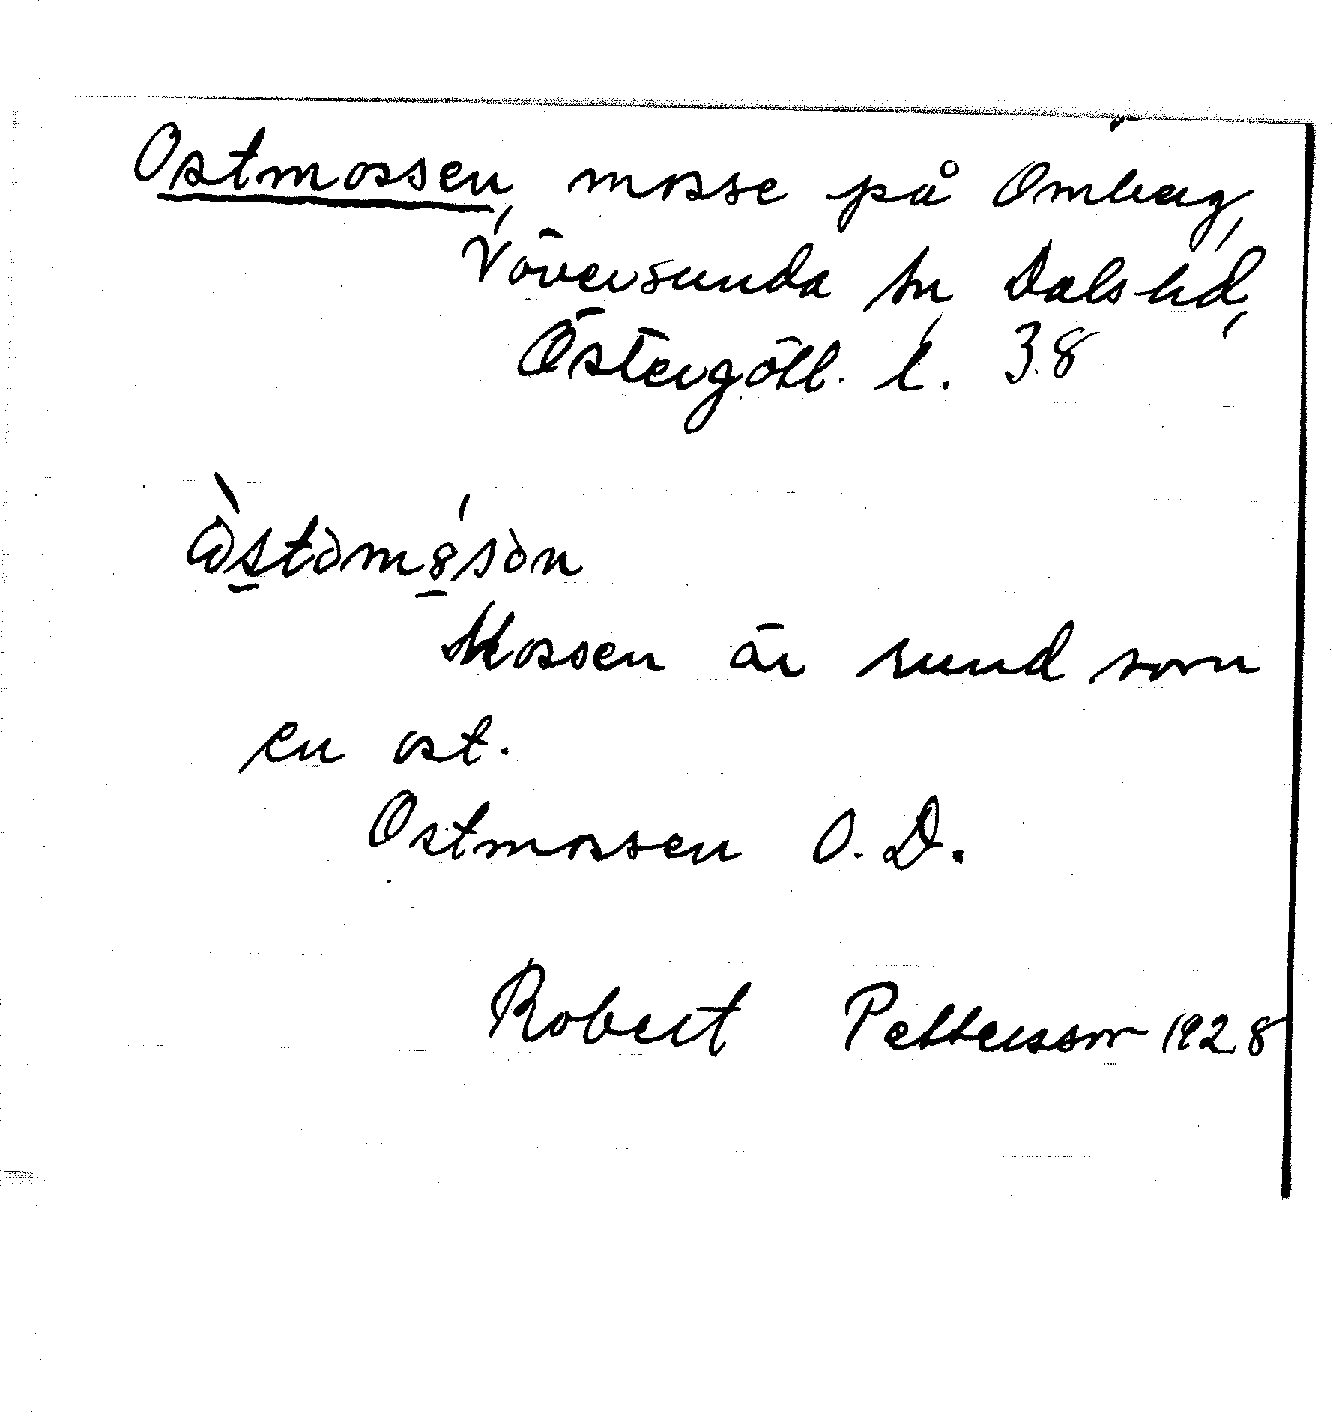 Ostmossen, mosse på Omberg,
Väversunda sn, Dals hd,
Östergötl. l. 38
Mossen är rund som
en ost.
Ostmossen O. D.
Robert Pettersson 1928